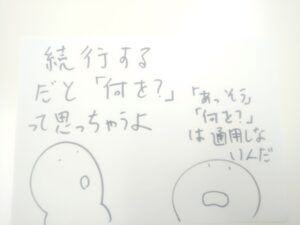 続行する
だと「何を?」
って思っちゃうよ
「あっそう」
「何を?」
は通用しな
いんだ